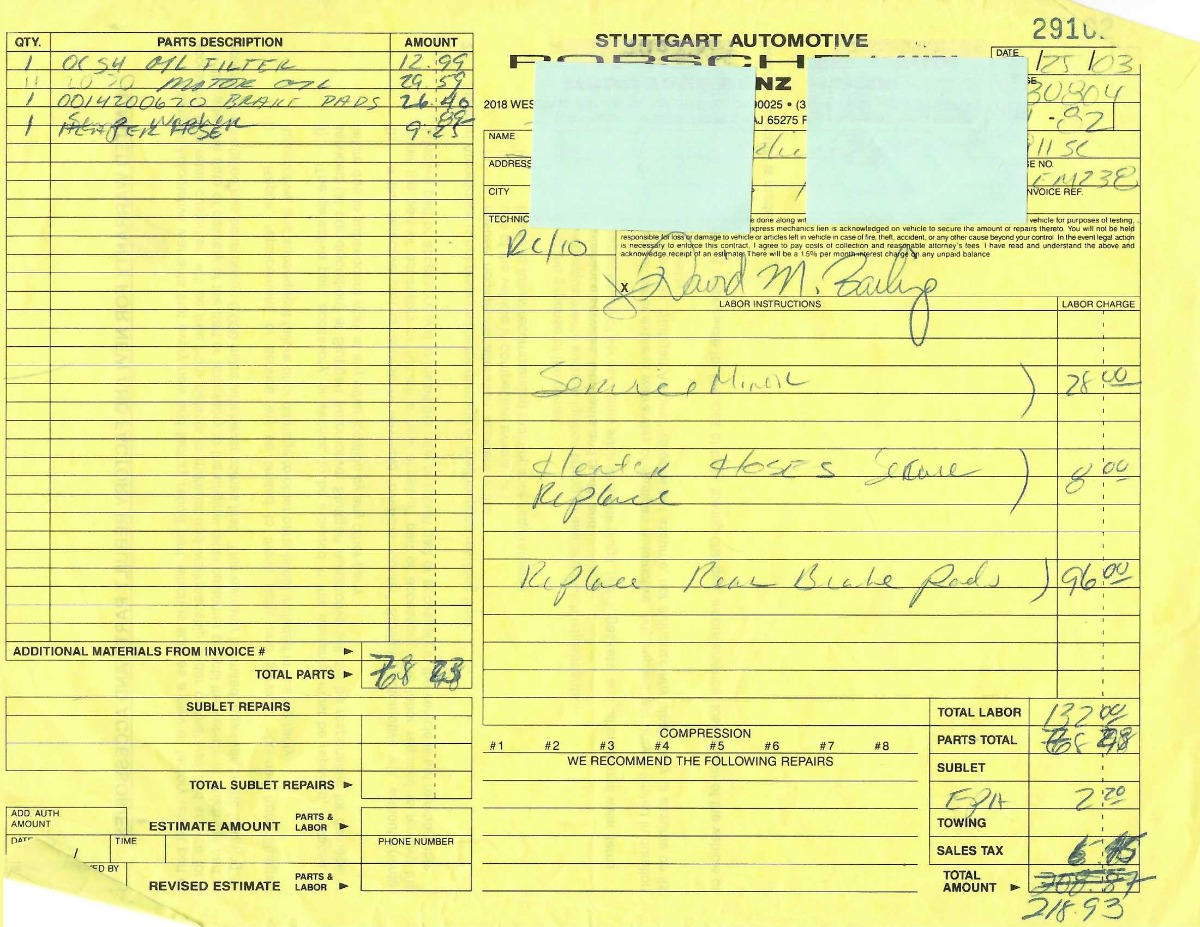 29102
STUTTGART AUTOMOTIVE
NZ
2018 WES
90025 • (3
AJ 65275
DATE
/25/03
30804
-82
911 SC
E NO.
EM238
NVOICE REF.
NAME
ADDRESS
CITY
TECHNIC
RC/10
be done along wi
vehicle for purposes of testing,
express mechanics lien is acknowledged on vehicle to secure the amount of repairs thereto. You will not be held
responsible for loss or damage to vehicle or articles left in vehicle in case of fire, theft, accident, or any other cause beyond your control. In the event legal action
is necessary to enforce this contract, I agree to pay costs of collection and reasonable attorney's fees. I have read and understand the above and
acknowledge receipt of an estimate. There will be a 1.5% per month interest charge on any unpaid balance
X David M.
QTY. PARTS DESCRIPTION AMOUNT
1 OC54 OIL FILTER 12.99
11 MOTOR OIL 29.59
1 0014200620 BRAKE PADS 26.40
1 HEATER HOSE 9.25
ADDITIONAL MATERIALS FROM INVOICE #
TOTAL PARTS
SUBLET REPAIRS
TOTAL SUBLET REPAIRS
ADD. AUTH AMOUNT
ESTIMATE AMOUNT PARTS & LABOR
DATE TIME PHONE NUMBER
ED BY
REVISED ESTIMATE PARTS & LABOR
LABOR INSTRUCTIONS LABOR CHARGE
Service Minor 28.00
Heater Hoses Secure 8.00
Replace
Replace Rear Brake Pads 96.00
COMPRESSION
#1 #2 #3 #4 #5 #6 #7 #8
WE RECOMMEND THE FOLLOWING REPAIRS
TOTAL LABOR 132.00
PARTS TOTAL
SUBLET
EPA 2.20
TOWING
SALES TAX
TOTAL AMOUNT
218.93